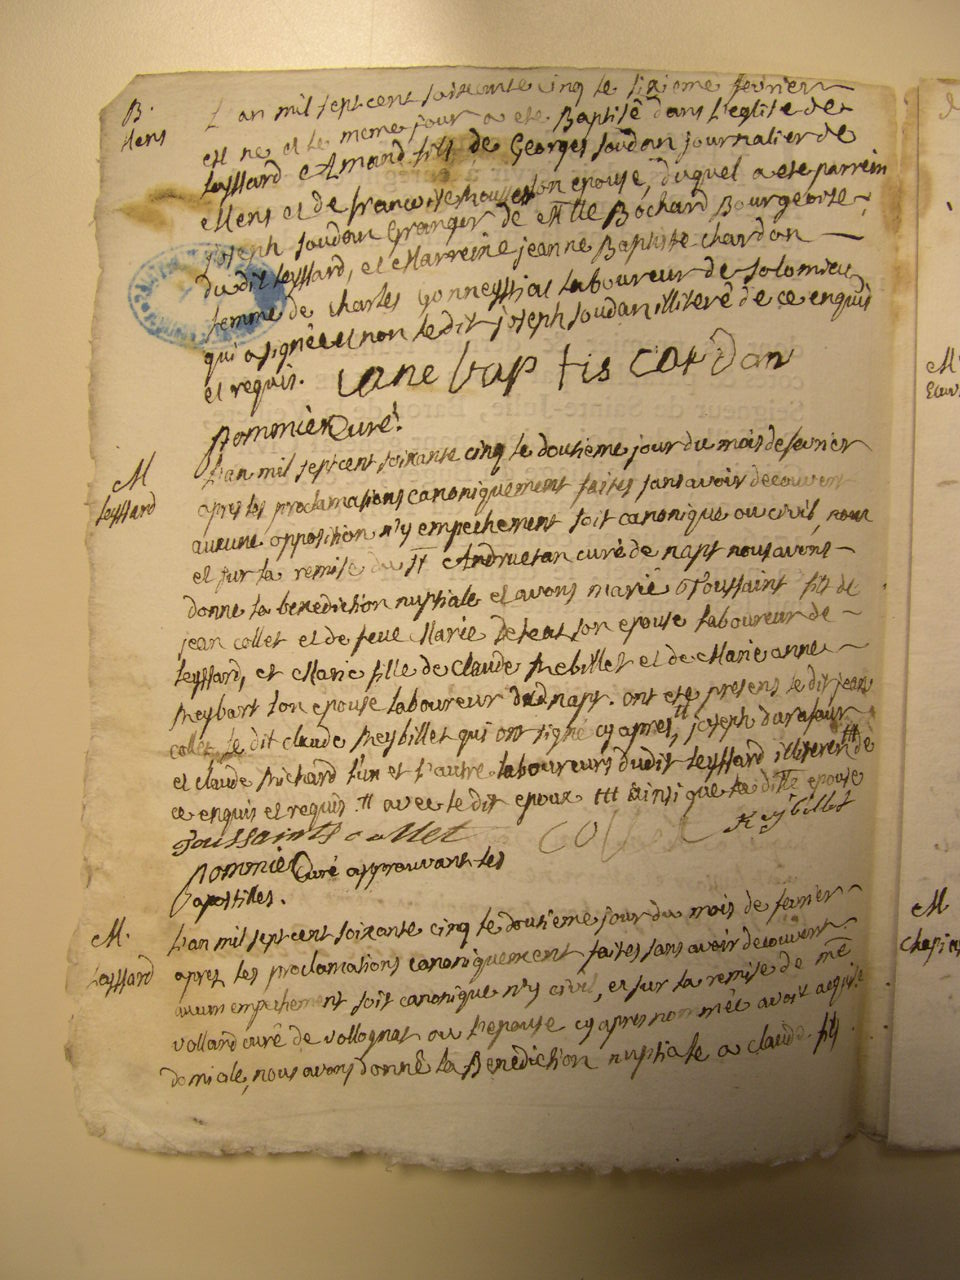 B.
Mens
L'an mil sept cent soixante cinq le sixieme fevrier
est ne et le meme jour a eté Baptisé dans l'eglise de
Leyssard Amand fils de Georges soudan journalier de
Mens et de francoise son epouse, duquel a eté parrein
joseph soudan Granger de Mlle Bochard Bourgeoise
du dit Leyssard, et Marreine jeanne Baptiste chardon
femme de charles Gonneyssiat laboureur de solomieu
qui a signée et non le dit joseph soudan illiteré de ce enquis
et requis. iane bap tis cardan
pommier Curé.
M
Leyssard
L'an mil sept cent soixante cinq le dousieme jour du mois de fevrier
apres les proclamations canoniquement faites sans avoir decouvert
aucune opposition n'y empechement soit canonique ou civil, nous
et sur la remise du curé de napt nous avons
donne la benediction nuptiale et avons marié Toussaint fils de
jean collet et de feue Marie son epouse laboureur de
Leyssard, et Marie fille de claude Reybillet et de Marie anne
Reybart son epouse laboureur dud napt. ont eté presens le dit jean
collet, le dit claude Reybillet qui ont signé cy apres ++, joseph
et claude Richard l'un et l'autre laboureurs dudit Leyssard illiteres +++ de
ce enquis et requis ++ avec le dit epoux +++ ainsi que la ditte epouse
Toussaints collet collet Reybillet
pommier Curé approuvant les
apostilles.
M.
Leyssard
L'an mil sept cent soixante cinq le dousieme jour du mois de fevrier
apres les proclamations canoniquement faites sans avoir decouvert
aucun empechement soit canonique n'y civil, et sur la remise de mre
vollard curé de vollognat ou l'epouse cy apres nommée avoit acquis
domicile, nous avons donné la Benediction nuptiale a claude fils
M
M
Chapieu